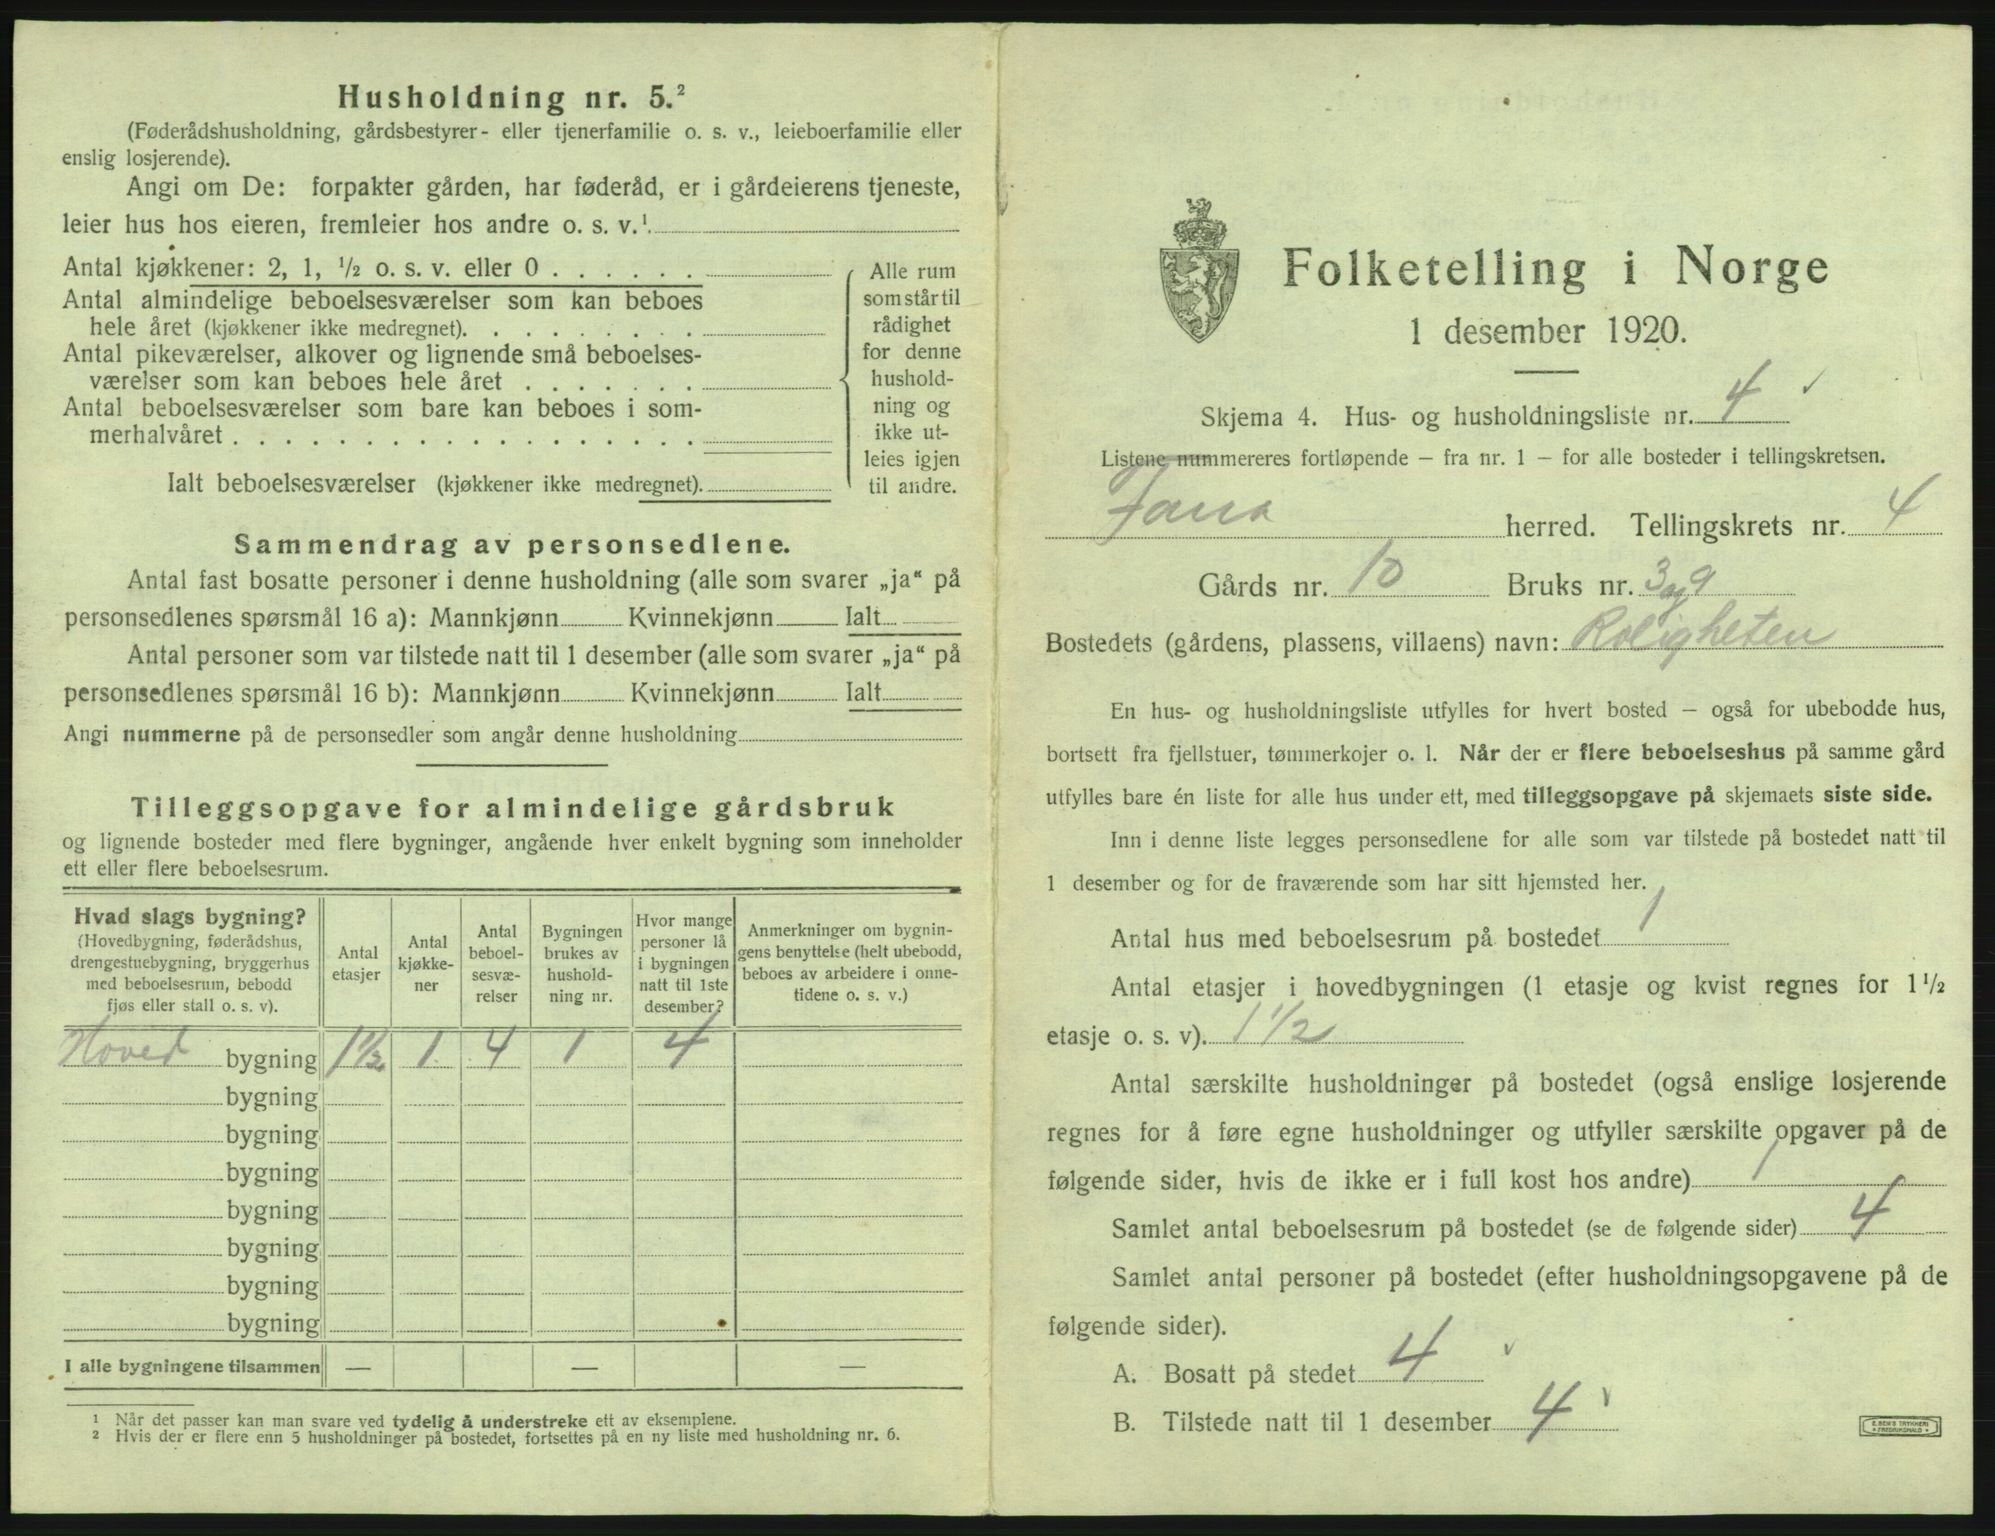 Husholdning nr. 5.²
(Føderådshusholdning, gårdsbestyrer- eller tjenerfamilie o. s. v., leieboerfamilie eller
enslig losjerende).
Angi om De: forpakter gården, har føderåd, er i gårdeierens tjeneste,
leier hus hos eieren, fremleier hos andre o. s. v.¹
Antal kjøkkener: 2, 1, ½ o. s. v. eller 0 . . . . . .
Antal almindelige beboelsesværelser som kan beboes
hele året (kjøkkener ikke medregnet). . . . . . . . .
Antal pikeværelser, alkover og lignende små beboelses-
værelser som kan beboes hele året . . . . . . .
Antal beboelsesværelser som bare kan beboes i som-
merhalvåret . . . . . . . . . . . . . . . . . .
Ialt beboelsesværelser (kjøkkener ikke medregnet).
Alle rum
som står til
rådighet
for denne
hushold-
ning og
ikke ut-
leies igjen
til andre.
Sammendrag av personsedlene.
Antal fast bosatte personer i denne husholdning (alle som svarer „ja“ på
personsedlenes spørsmål 16 a): Mannkjønn Kvinnekjønn Ialt
Antal personer som var tilstede natt til 1 desember (alle som svarer „ja“ på
personsedlenes spørsmål 16 b): Mannkjønn Kvinnekjønn Ialt
Angi nummerne på de personsedler som angår denne husholdning
Tilleggsopgave for almindelige gårdsbruk
og lignende bosteder med flere bygninger, angående hver enkelt bygning som inneholder
ett eller flere beboelsesrum.
Hvad slags bygning?
(Hovedbygning, føderådshus,
drengestuebygning, bryggerhus
med beboelsesrum, bebodd
fjøs eller stall o. s. v).
Antal
etasjer
Antal
kjøkke-
ner
Antal
beboel-
sesvæ-
relser
Bygningen
brukes av
hushold-
ning nr.
Hvor mange
personer lå
i bygningen
natt til 1ste
desember?
Anmerkninger om bygnin-
gens benyttelse (helt ubebodd,
beboes av arbeidere i onne-
tidene o. s. v.)
Hoved bygning 1½ 1 4 1 4
bygning
bygning
bygning
bygning
bygning
bygning
bygning
I alle bygningene tilsammen — — —
¹ Når det passer kan man svare ved tydelig å understreke ett av eksemplene.
² Hvis der er flere enn 5 husholdninger på bostedet, fortsettes på en ny liste med husholdning nr. 6.
Folketelling i Norge
1 desember 1920.
Skjema 4. Hus- og husholdningsliste nr. 4
Listene nummereres fortløpende — fra nr. 1 — for alle bosteder i tellingskretsen.
Fana herred. Tellingskrets nr. 4
Gårds nr. 10 Bruks nr. 3 og 9
Bostedets (gårdens, plassens, villaens) navn: Roligheten
En hus- og husholdningsliste utfylles for hvert bosted — også for ubebodde hus,
bortsett fra fjellstuer, tømmerkojer o. l. Når der er flere beboelseshus på samme gård
utfylles bare én liste for alle hus under ett, med tilleggsopgave på skjemaets siste side.
Inn i denne liste legges personsedlene for alle som var tilstede på bostedet natt til
1 desember og for de fraværende som har sitt hjemsted her.
Antal hus med beboelsesrum på bostedet 1
Antal etasjer i hovedbygningen (1 etasje og kvist regnes for 1½
etasje o. s. v). 1½
Antal særskilte husholdninger på bostedet (også enslige losjerende
regnes for å føre egne husholdninger og utfyller særskilte opgaver på de
følgende sider, hvis de ikke er i full kost hos andre) 1
Samlet antal beboelsesrum på bostedet (se de følgende sider) 4
Samlet antal personer på bostedet (efter husholdningsopgavene på de
følgende sider).
A. Bosatt på stedet 4
B. Tilstede natt til 1 desember 4
E. SEM'S TRYKKERI
FREDRIKSHALD